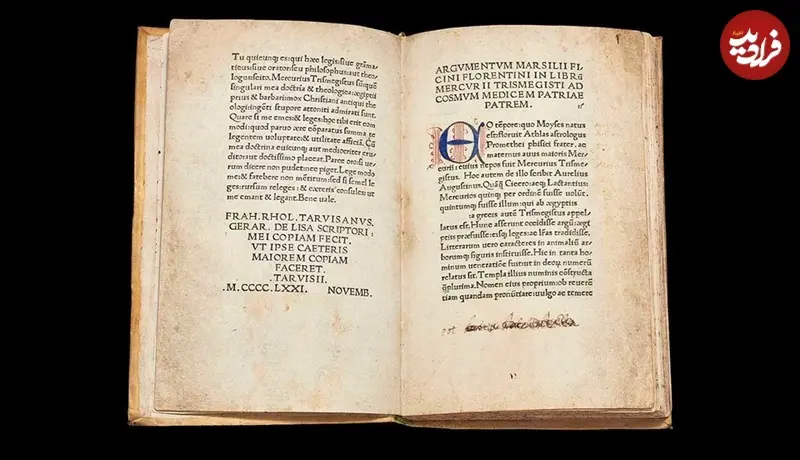 Tu quicunq; es: qui hæc legis: siue grãma/
ticus: siue orator: seu philosophus: aut theo/
logus: scito. Mercurius Trismegistus sũ: quẽ
singulari mea doctria & theologica: ægiptii
prius & barbari: mox Christiani antiqui the
ologi: ingẽti stupore attoniti admirati sunt.
Quare si me emes: & leges: hoc tibi erit com
modi: quod paruo ære cõparatus summa te
legentem uoluptate: & utilitate afficiã. Cũ
mea doctrina cuicunq; aut mediocriter eru/
dito: aut doctissimo placeat. Parce oro: si ue/
rum dicere non pudet: nec piget. Lege modo
me: & fatebere non mẽtitum: sed si semel le
ges: rursum releges: & cæteris consules: ut
me emant & legant. Bene uale.
FRAH. RHOL. TARVISANVS.
GERAR. DE LISA SCRIPTORI:
MEI COPIAM FECIT.
VT IPSE CAETERIS
MAIOREM COPIAM
FACERET.
.TARVISII.
.M.CCCC.LXXI. NOVEMB.
ARGVMENTVM MARSILII FI/
CINI FLORENTINI IN LIBRŨ
MERCVRII TRISMEGISTI AD
COSMVM MEDICEM PATRIAE
PATREM.
EO tẽpore: quo Moyses natus
est: floruit Athlas astrologus
Promethei phisici frater. ac
maternus auus maioris Mer/
curii: cuius nepos fuit Mercurius Trisme/
gistus. Hoc autem de illo scribit Aurelius
Augustinus. Quãq̃ Cicero: aeq; Lactantius:
Mercurios quinq; per ordinẽ fuisse uolũt.
quintumq; fuisse illum: qui ab ægyptiis
: a græcis autẽ Trismegistus appel/
latus est. Hunc asserunt occidisse argũ: ægi/
ptiis præfuisse: eisq; leges: ac lr̃as tradidisse.
Litterarum uero caracteres in animaliũ ar/
borumq; figuris instituisse. Hic in tanta ho/
minum ueneratiõe fuit: ut in deoq; numerũ
relatus sit. Templa illius numinis cõstructa
q̃plurima. Nomen eius proprium: ob reuerẽ
tiam quandam pronũtiare: uulgo ac temere
فرادید